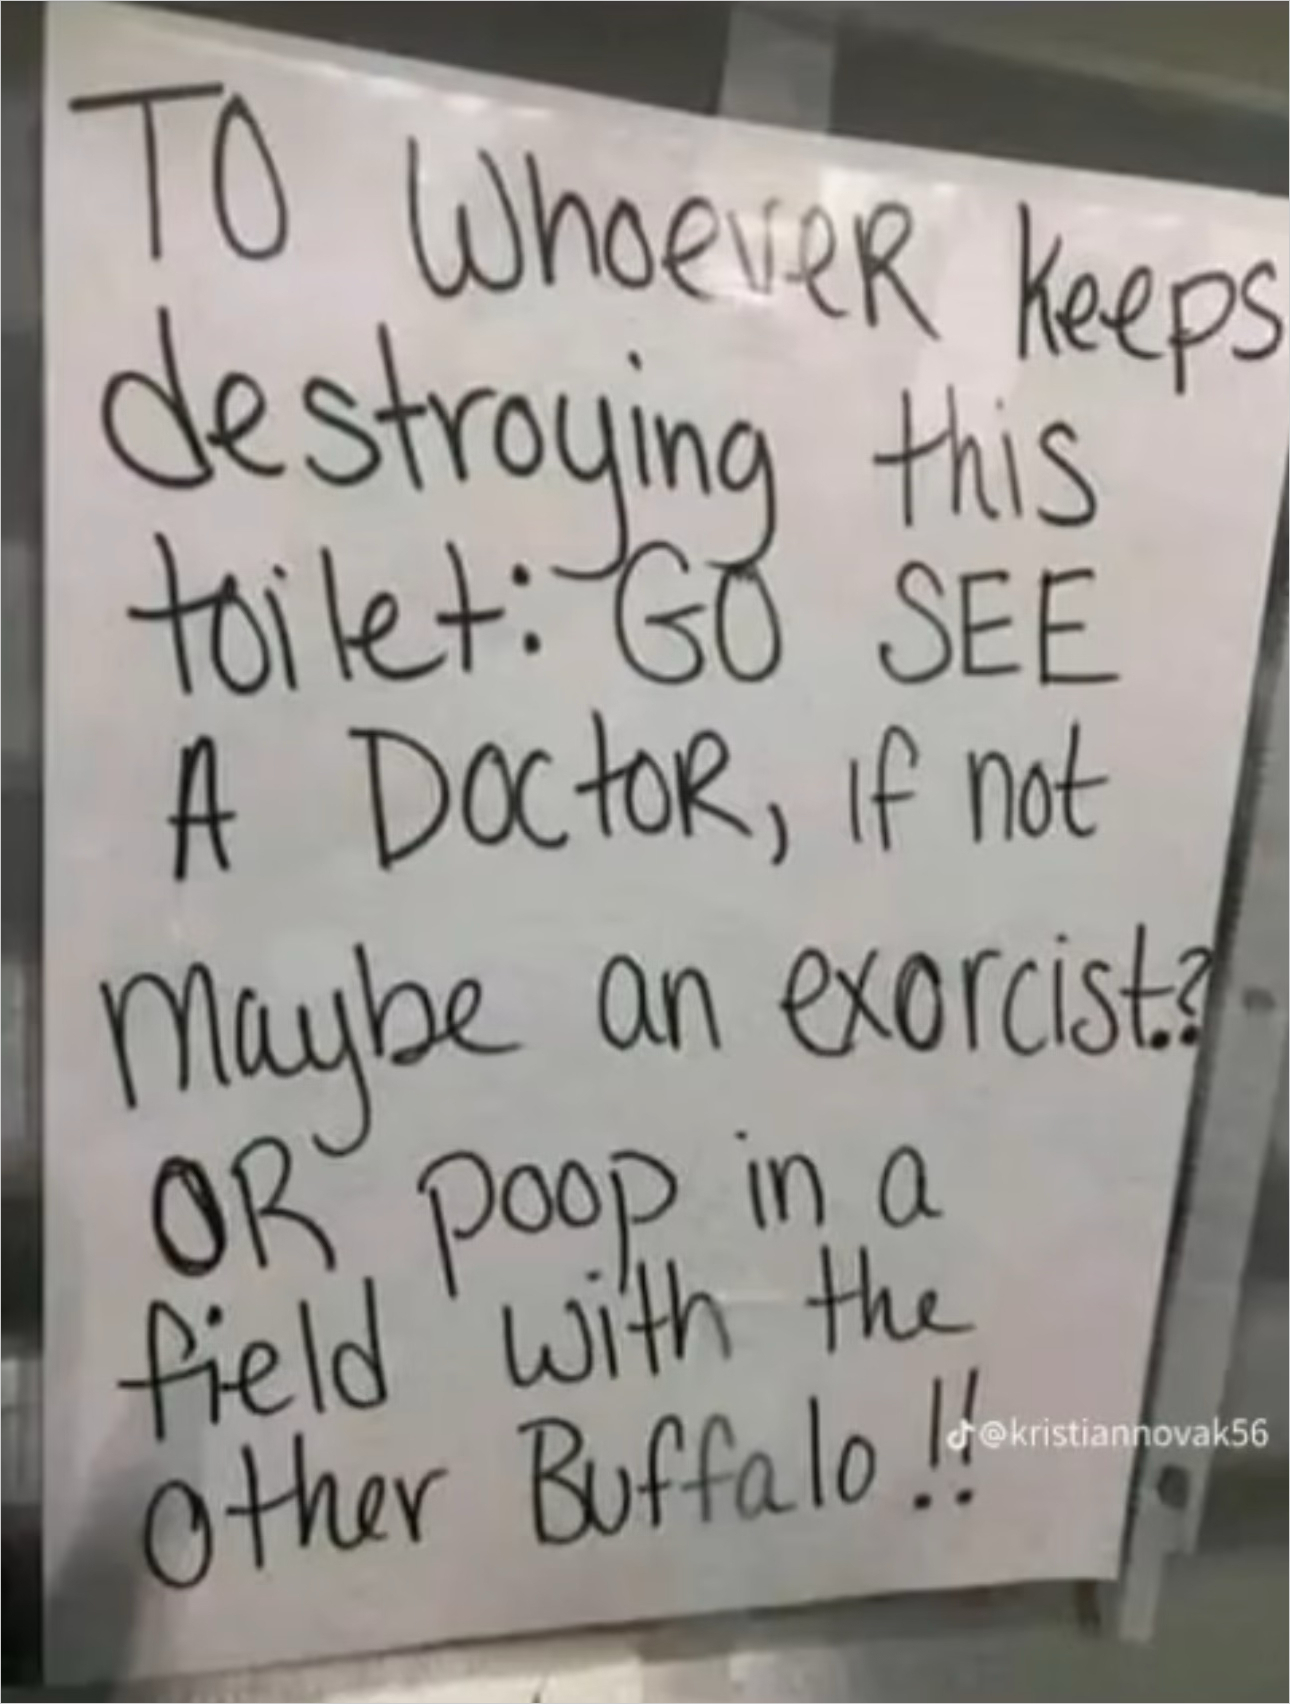 TO WhoeveR keeps
destroying this
toilet: GO SEE
A DOCtOR, if not
Maybe an exorcist.?
OR poop in a
field with the
other Buffalo!!
@kristiannovak56